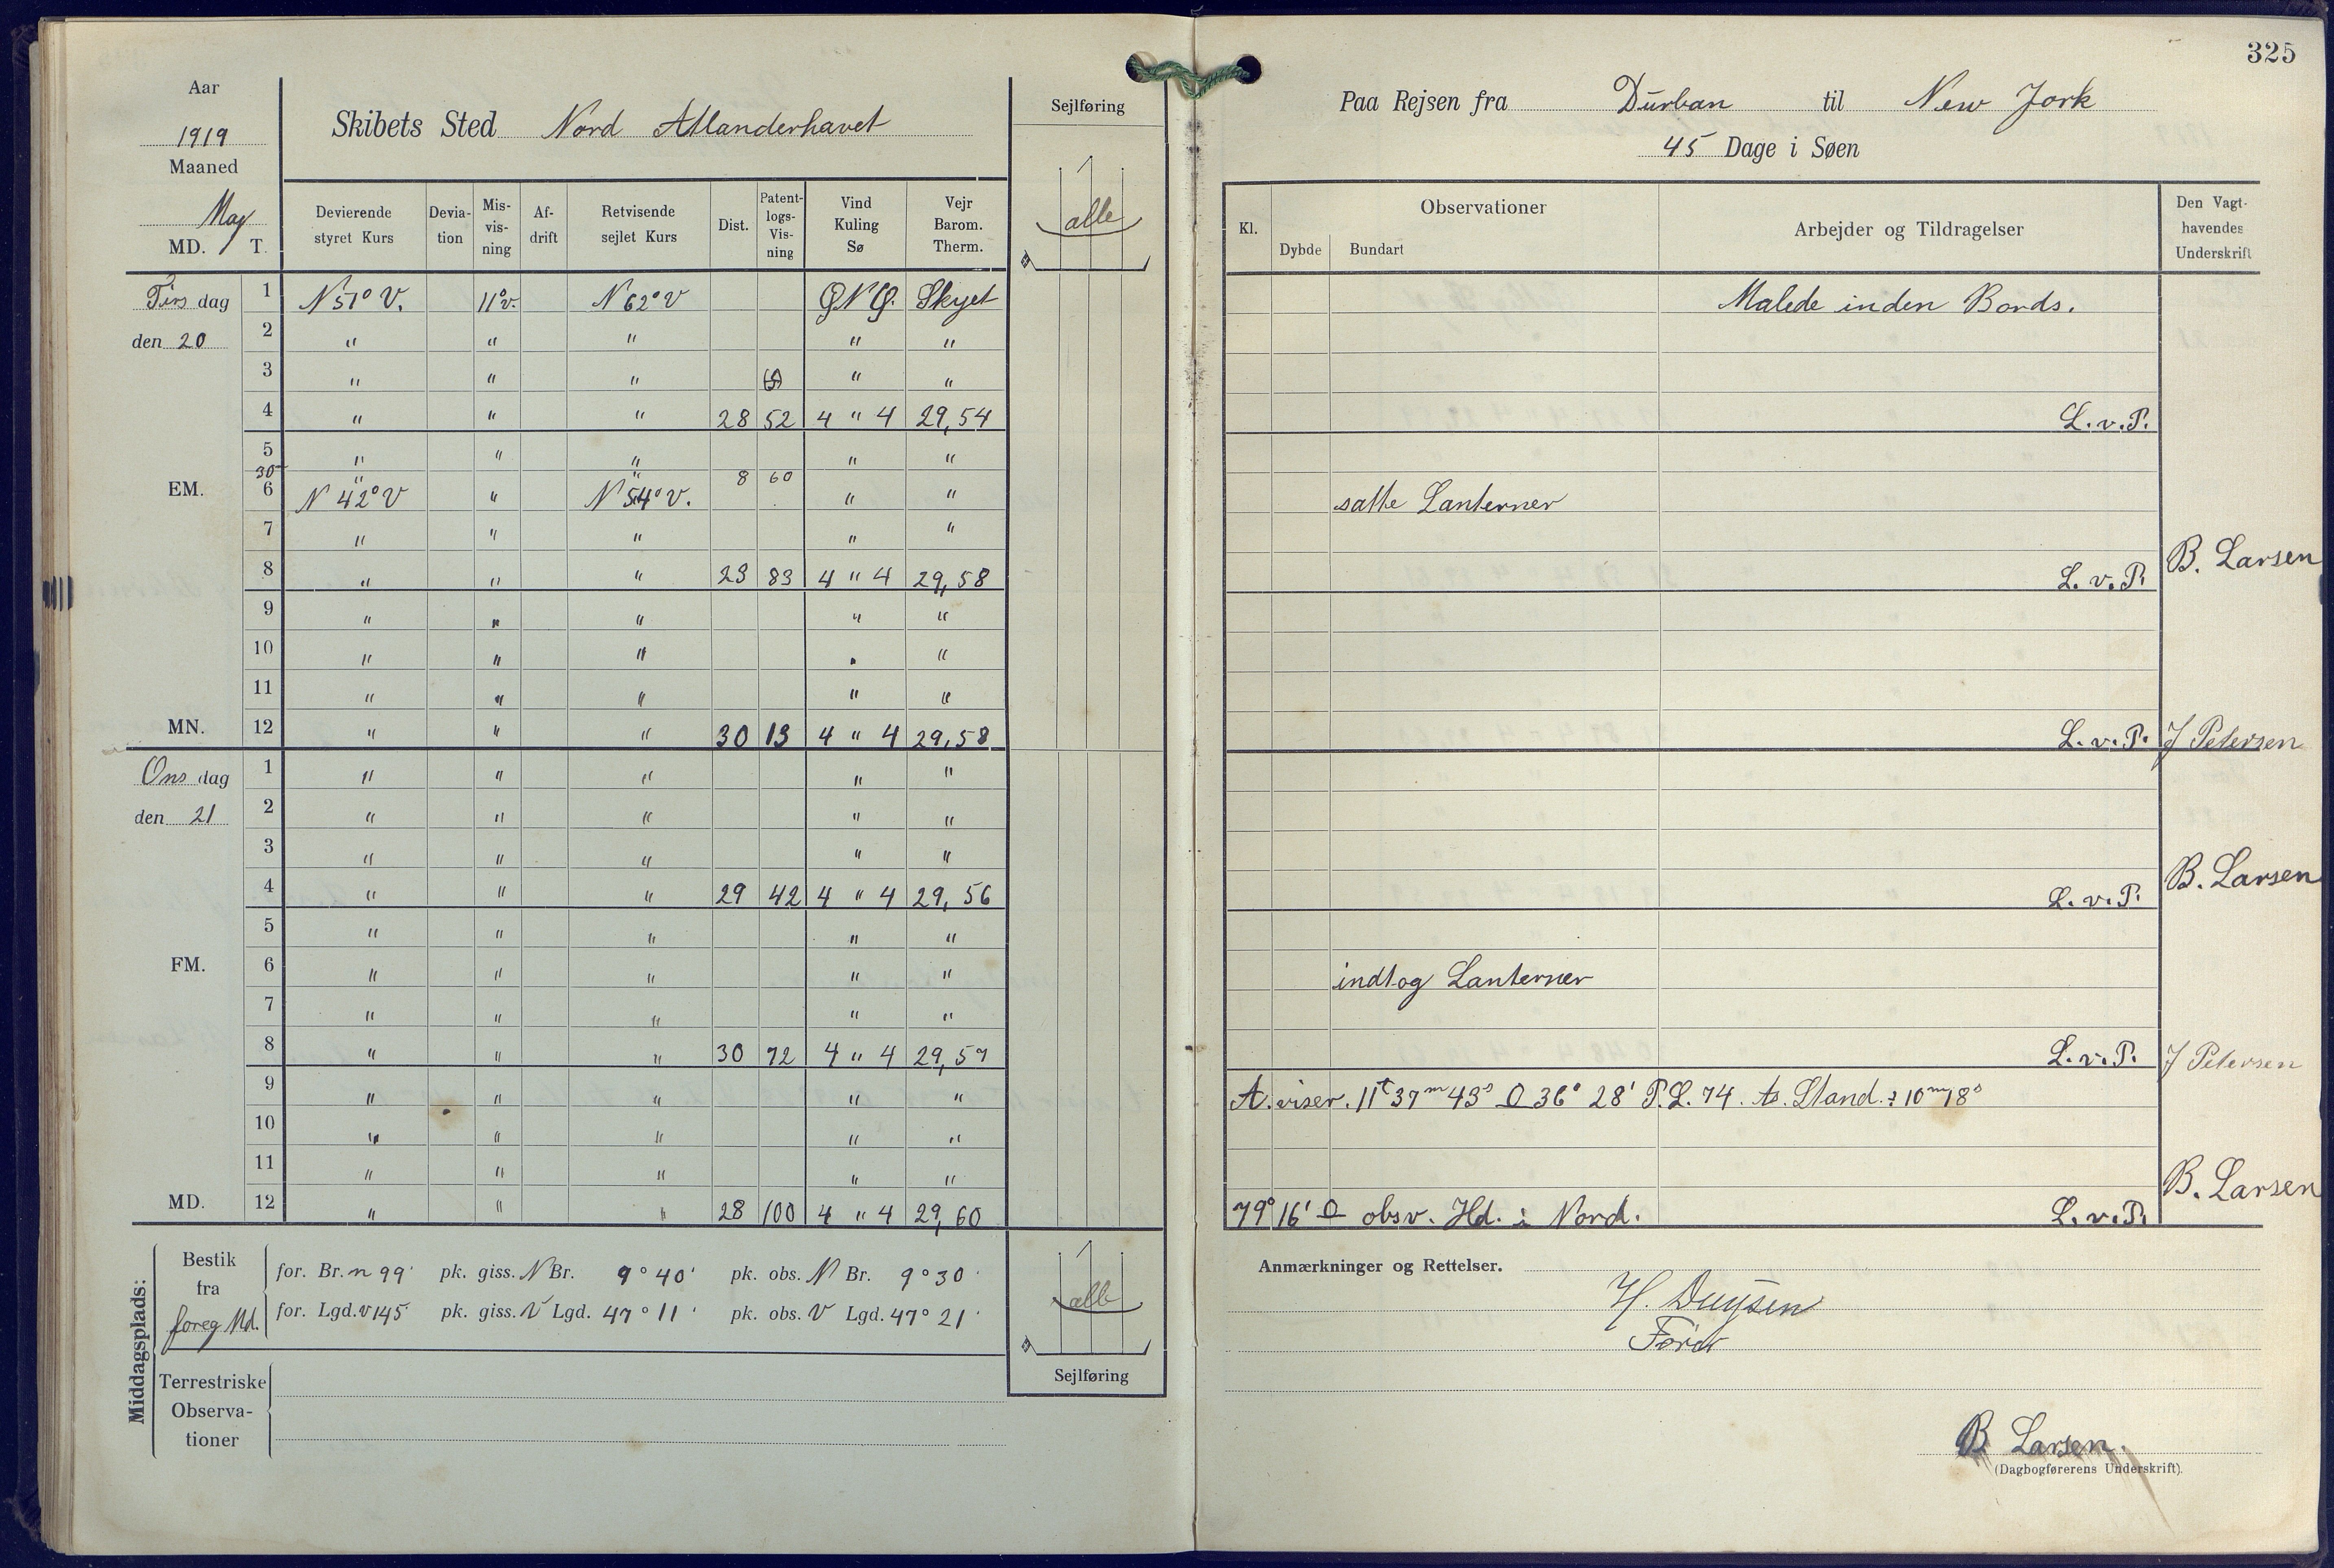 325
Aar
1919
Maaned
May
MD. T.
Skibets Sted Nord Atlanderhavet
Sejlføring
alle
Paa Rejsen fra Durban til New Jork
45 Dage i Søen
Devierende styret Kurs | Devia-tion | Mis-vis-ning | Af-drift | Retvisende sejlet Kurs | Dist. | Patent-logs-Vis-ning | Vind Kuling Sø | Vejr Barom. Therm.
Kl. | Observationer | Dybde | Bundart | Arbejder og Tildragelser | Den Vagt-havendes Underskrift
Tirsdag 1 N 51° V. 11° v. N 62° V Ø N Ø. Skyet Malede inden Bords.
den 20 2 " " " " "
3 " " " " "
4 " " " 28 52 4 " 4 29,54 L.v.P.
5 " " " " "
30 " " 8 60
EM. 6 N 42° V " N 54° V. " " satte Lanterner
7 " " " " "
8 " " " 23 83 4 " 4 29,58 L.v.P. B. Larsen
9 " " " " "
10 " " " " "
11 " " " " "
MN. 12 " " " 30 13 4 " 4 29,58 L.v.P. J Petersen
Onsdag 1 " " " " "
den 21 2 " " " " "
3 " " " " "
4 " " " 29 42 4 " 4 29,56 L.v.P. B. Larsen
5 " " " " "
FM. 6 " " " " " indtog Lanterner
7 " " " " "
8 " " " 30 72 4 " 4 29,57 L.v.P. J Petersen
9 " " " " " A. viser. 11t 37m 43s O 36° 28' P.L. 74. As. Stand. ÷ 10m 18s
10 " " " " "
11 " " " " "
MD. 12 " " " 28 100 4 " 4 29,60 79° 16' O obsv. Hd. i Nord. L.v.P. B. Larsen
Middagsplads:
Bestik fra foreg Md.
for. Br. n 99' pk. giss. N Br. 9° 40' pk. obs. N Br. 9° 30'
for. Lgd. v 145' pk. giss. V Lgd. 47° 11' pk. obs. V Lgd. 47° 21'
Terrestriske
Observa-
tioner
alle
Sejlføring
Anmærkninger og Rettelser.
H. Duysen
Fører
B Larsen.
(Dagbogførerens Underskrift).